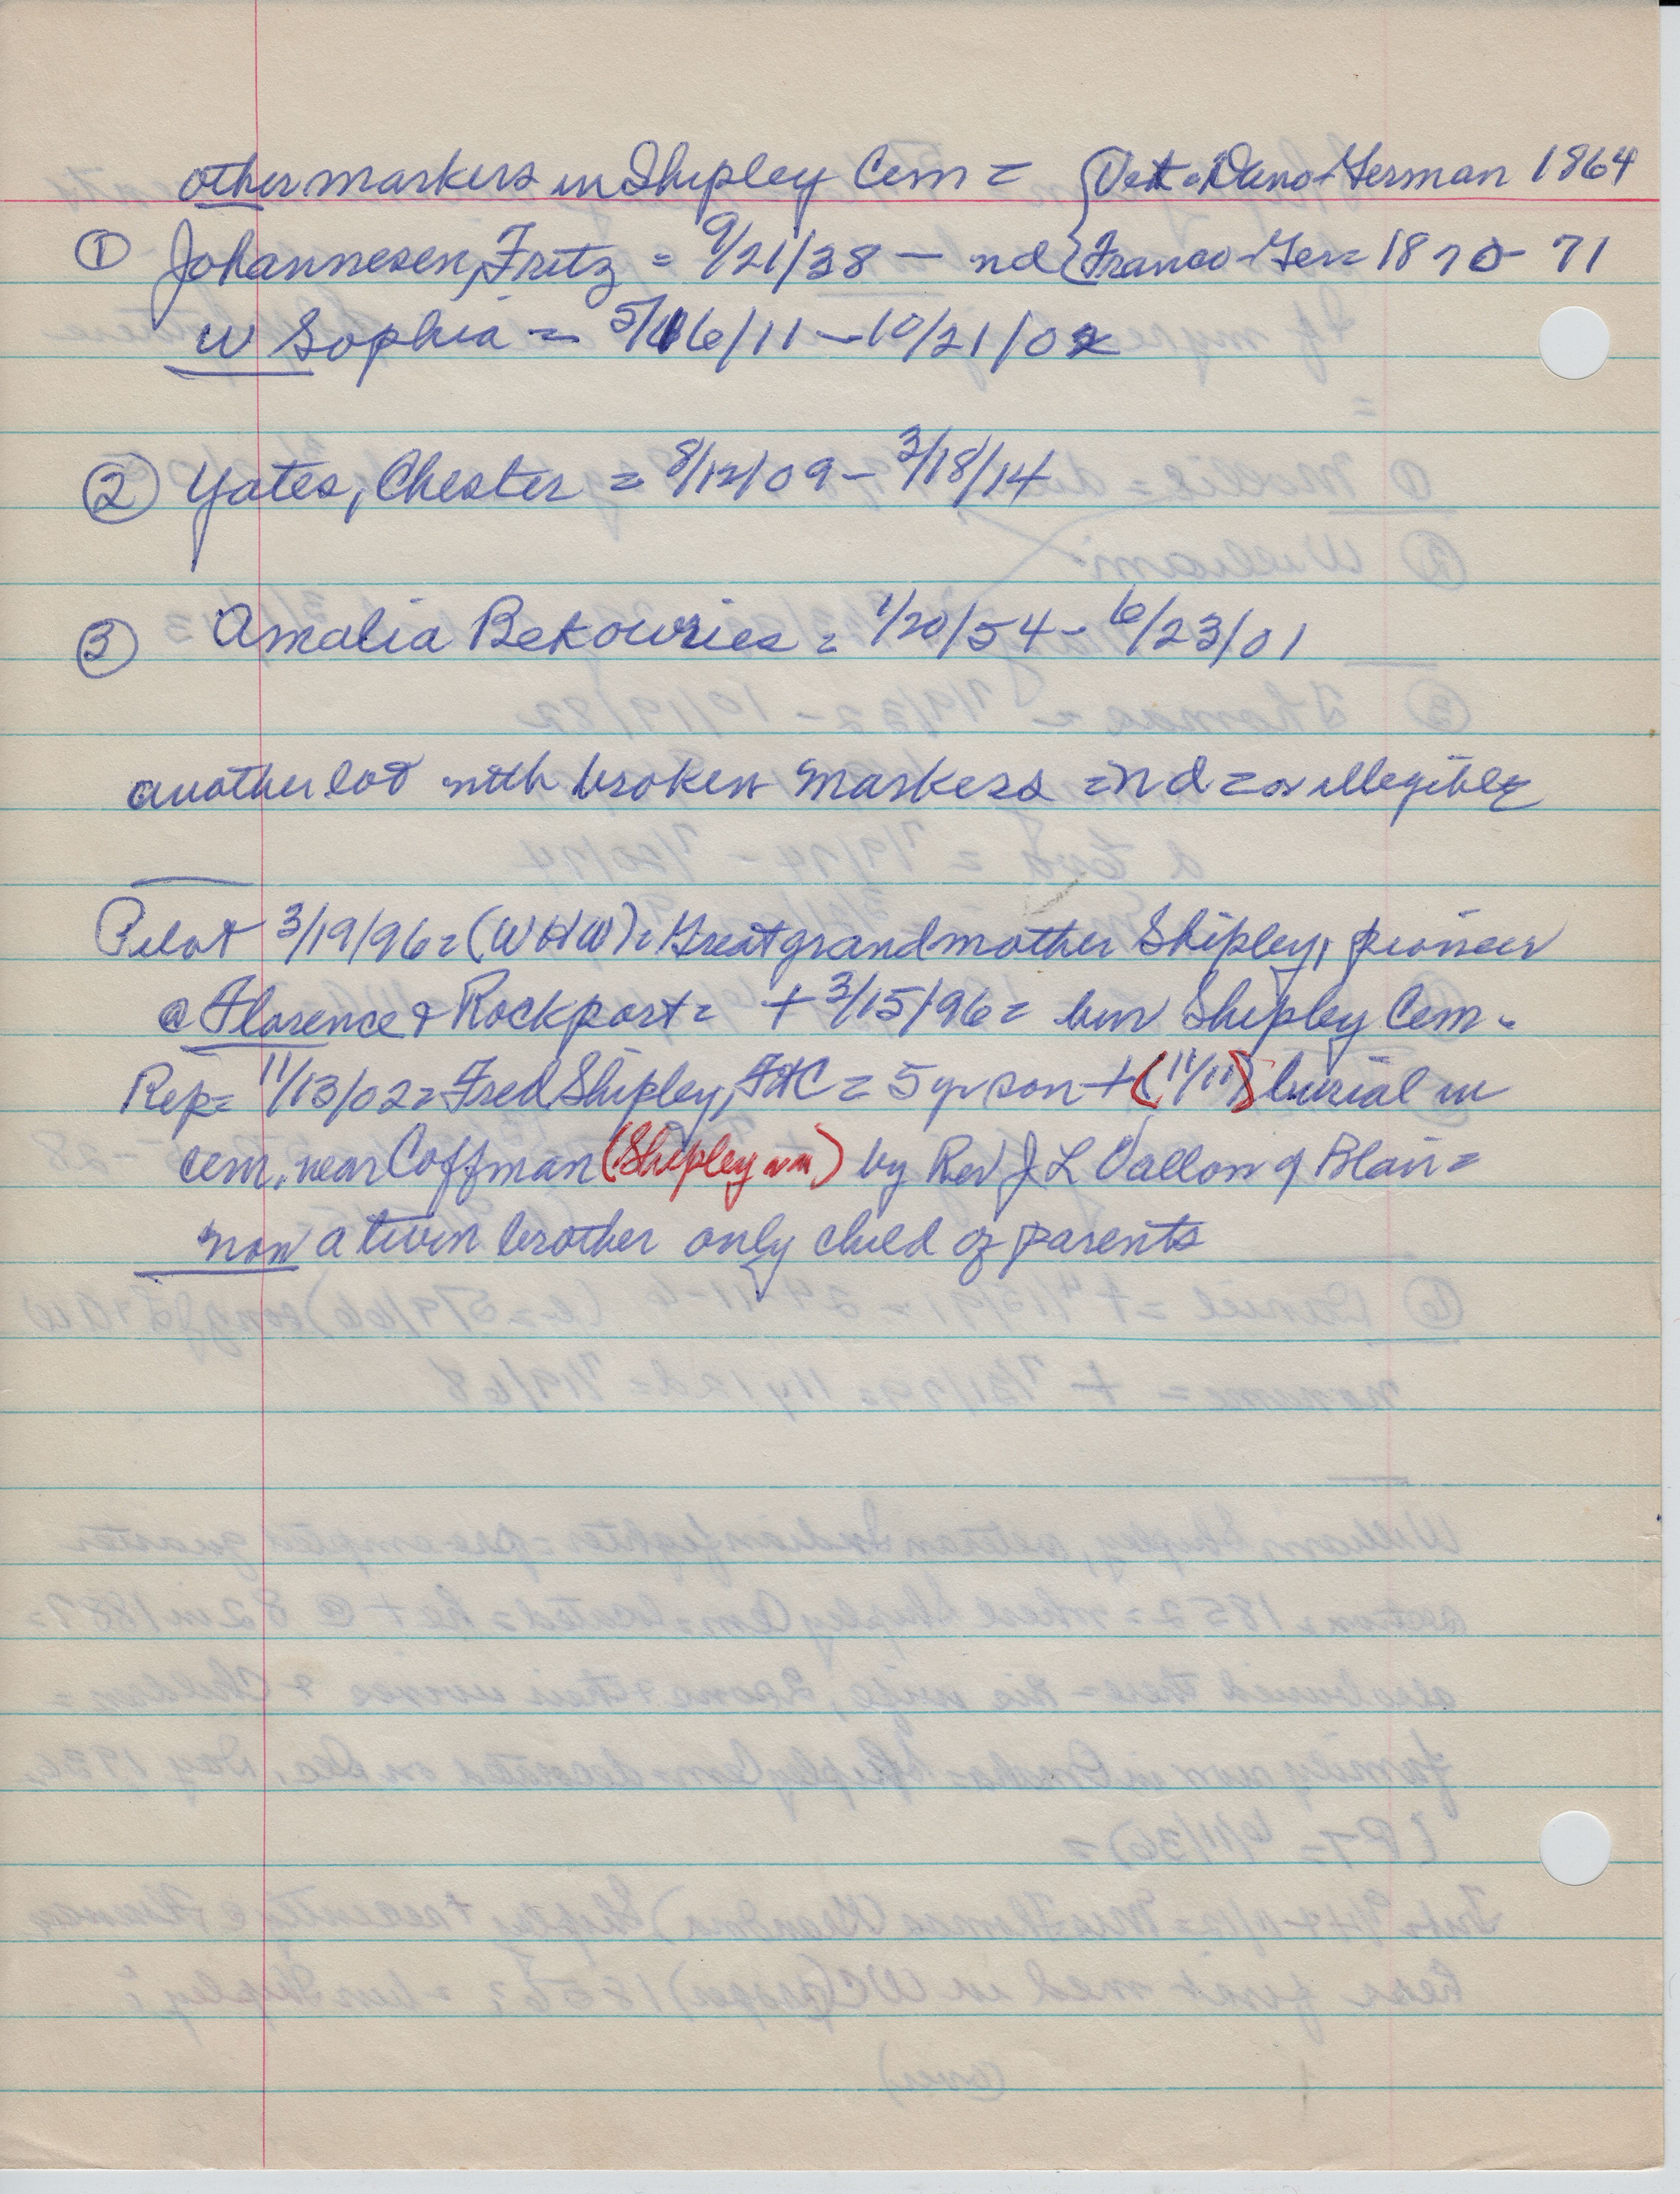 other markers in Shipley Cem = { Vet = Dano-German 1864
① Johannesen, Fritz = 9/21/38 — nd { Franco-Ger = 1870-71
w Sophia = 5/16/11 - 10/21/02
② Yates, Chester = 8/12/09 - 3/18/14
③ Amalia Bekowries = 1/20/54 - 6/23/01
another lot with broken markers = nd = or illegible
Pilot 3/19/96 = (WHW) = Great grandmother Shipley, pioneer
@ Florence & Rockport = + 3/15/96 = bur Shipley Cem -
Rep = 11/13/02 = Fred Shipley, = 5 yr son + (11/11) burial in
cem. near Coffman (Shipley) by Rev J L Vallon of Blair =
now a twin brother only child of parents